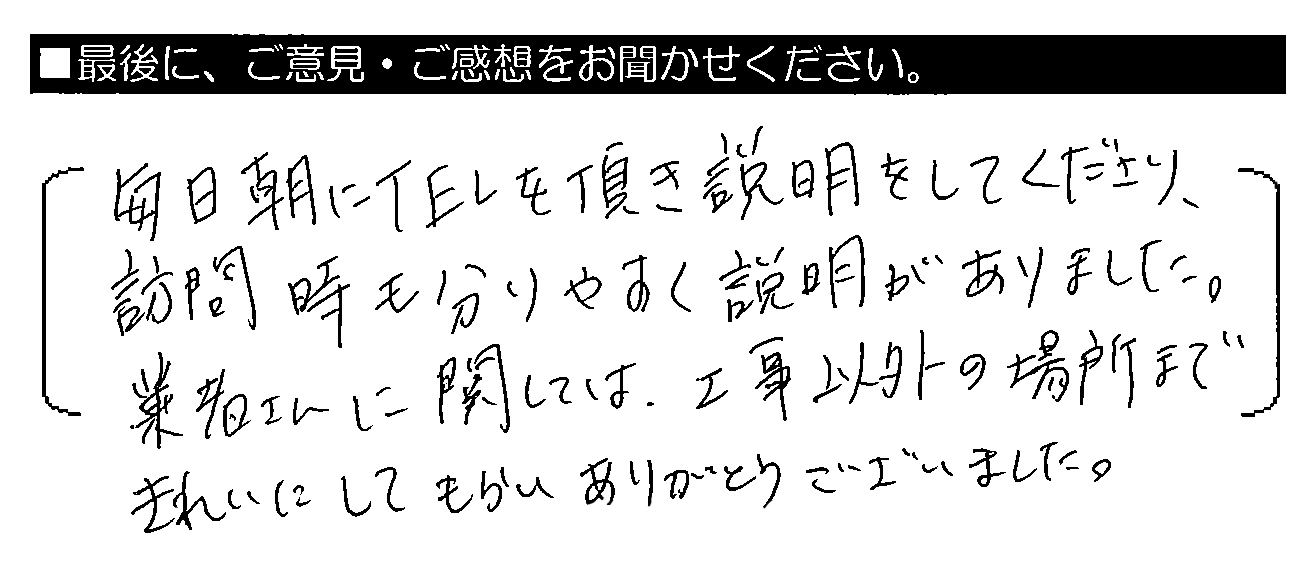 ■最後に、ご意見・ご感想をお聞かせください。
毎日朝にTELを頂き説明をしてくださり、
訪問時も分りやすく説明がありました。
業者さんに関しては、工事以外の場所まで
きれいにしてもらいありがとうございました。